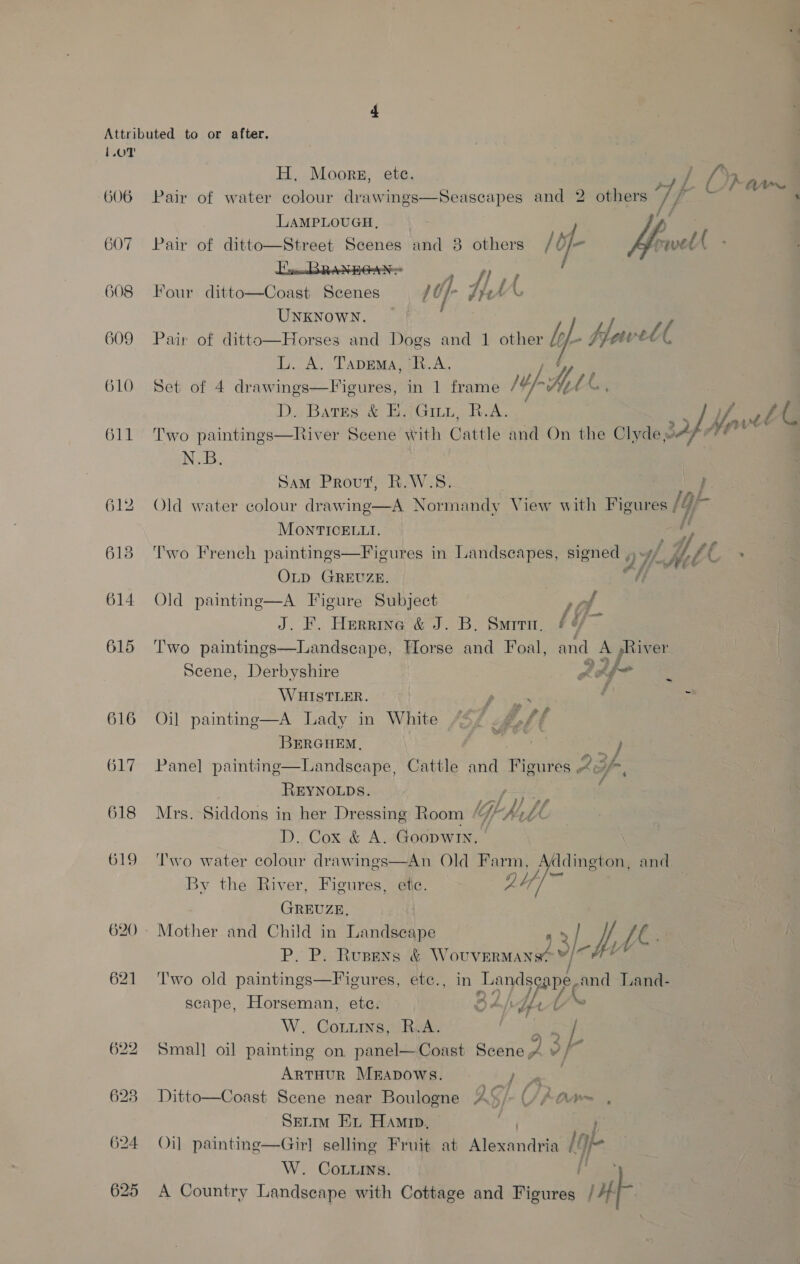 4
Attributed to or after.
LOT
H. Moore, etc.
606 Pair of water colour drawings—Seascapes and 2 others 7/-
Lamplough.
607 Pair of ditto—Street Scenes and 3 others 10/- Howell
E. Branegan.
608 Four ditto—Coast Scenes 10/- Hill
Unknown.
609 Pair of ditto—Horses and Dogs and 1 other 10/- Howell
L. A. Tadema, R.A.
610 Set of 4 drawings—Figures, in 1 frame 14/- Hill
D. Bates & E. Gill, R.A.
611 Two paintings—River Scene with Cattle and On the Clyde, Howell
N.B.
Sam Prout, R.W.S.
612 Old water colour drawing—A Normandy View with Figures 19/-
Monticelli.
613 Two French paintings—Figures in Landscapes, signed Hill
Old Greuze.
614 Old painting—A Figure Subject 18/-
J. F. Herring & J. B. Smith.
615 Two paintings—Landscape, Horse and Foal, and A River
Scene, Derbyshire 22/-
Whistler.
616 Oil painting—A Lady in White Hill
Berghem.
617 Panel painting—Landscape, Cattle and Figures 23/-
Reynolds.
618 Mrs. Siddons in her Dressing Room 19/- Hill
D. Cox & A. Goodwin.
619 Two water colour drawings—An Old Farm, Addington, and
By the River, Figures, etc. 24/-
Greuze.
620 Mother and Child in Landscape 23/- Hill
P. P. Rubens & Wouvermans.
621 Two old paintings—Figures, etc., in Landscape and Land-
scape, Horseman, etc. 32/- Hill
W. Collins, R.A.
622 Small oil painting on panel—Coast Scene 23/-
Arthur Meadows.
623 Ditto—Coast Scene near Boulogne 25/-
Selim El Hamid.
624 Oil painting—Girl selling Fruit at Alexandria 19/-
W. Collins.
625 A Country Landscape with Cottage and Figures 14/-